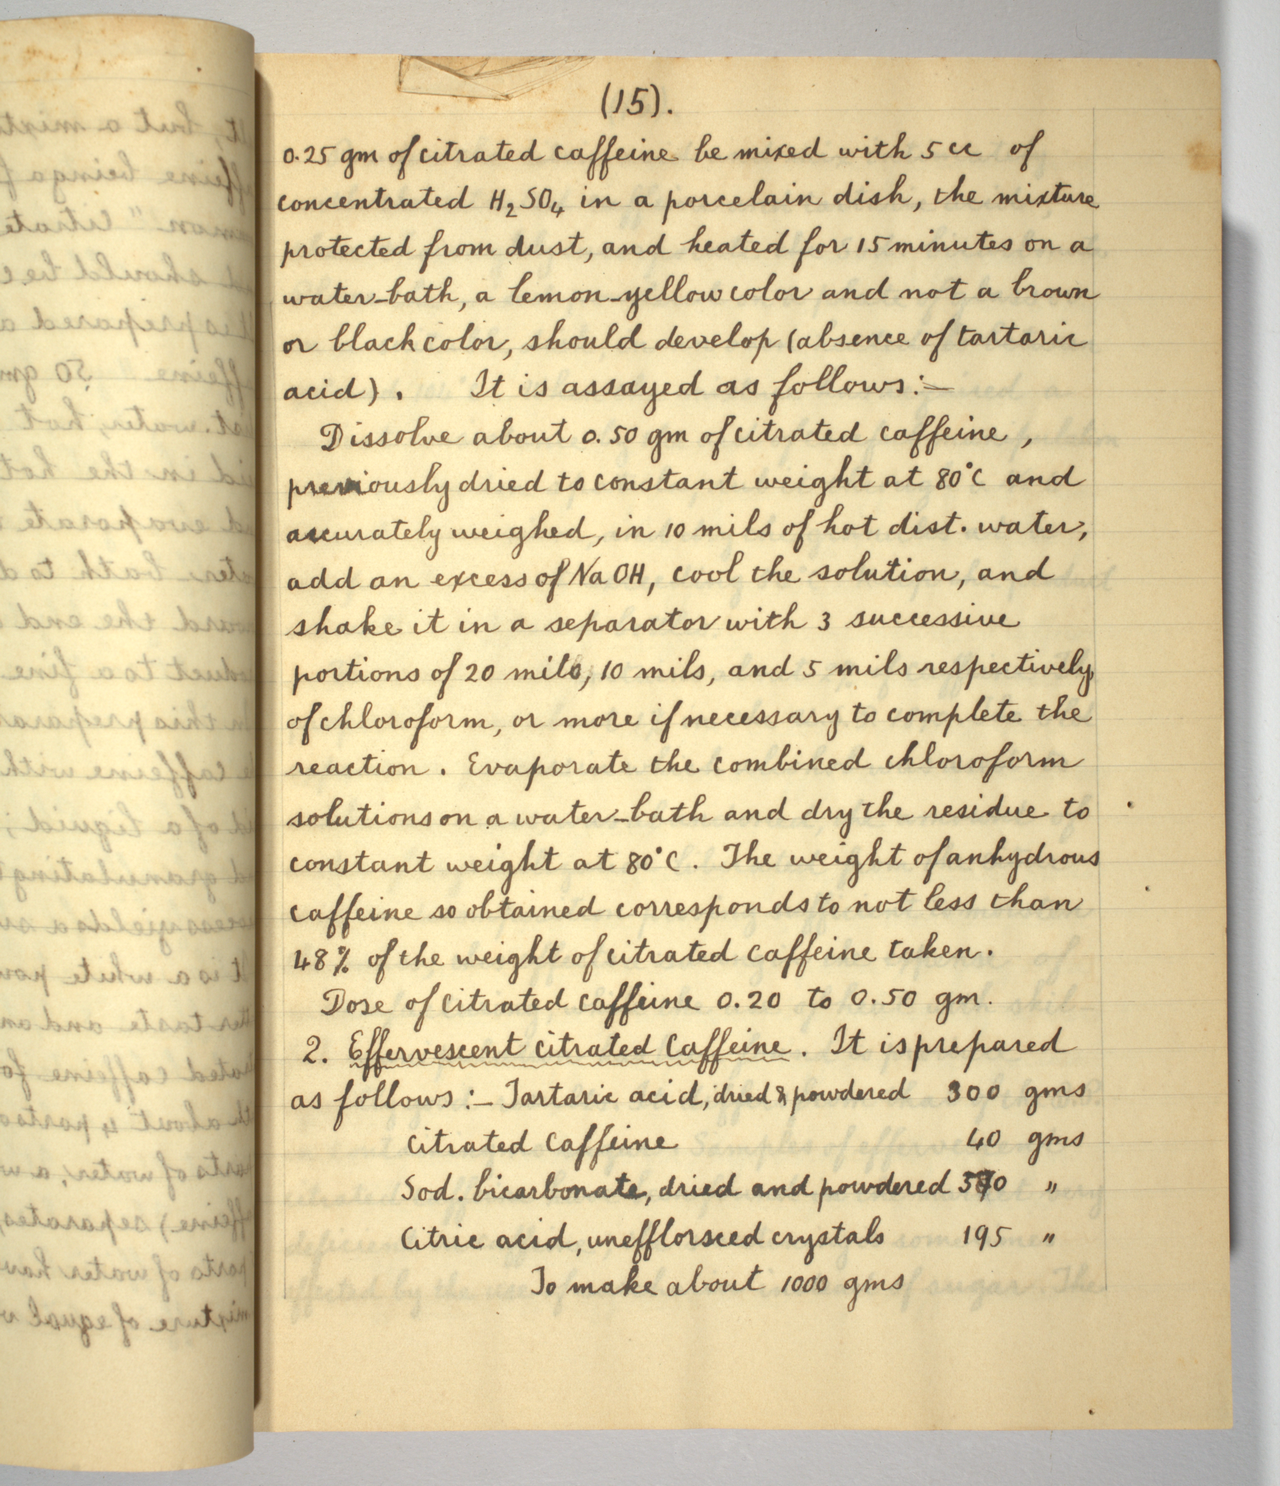 (15).
0.25 gm of citrated caffeine be mixed with 5 cc of
concentrated H₂SO₄ in a porcelain dish, the mixture
protected from dust, and heated for 15 minutes on a
water-bath, a lemon-yellow color and not a brown
or black color, should develop (absence of tartaric
acid). It is assayed as follows:-
Dissolve about 0.50 gm of citrated caffeine,
previously dried to constant weight at 80°C and
accurately weighed, in 10 mils of hot dist. water,
add an excess of NaOH, cool the solution, and
shake it in a separator with 3 successive
portions of 20 mils, 10 mils, and 5 mils respectively
of chloroform, or more if necessary to complete the
reaction. Evaporate the combined chloroform
solutions on a water-bath and dry the residue to
constant weight at 80°C. The weight of anhydrous
caffeine so obtained corresponds to not less than
48% of the weight of citrated caffeine taken.
Dose of citrated caffeine 0.20 to 0.50 gm.
2. Effervescent citrated Caffeine. It is prepared
as follows:- Tartaric acid, dried & powdered 300 gms
Citrated Caffeine 40 gms
Sod. bicarbonate, dried and powdered 570 "
Citric acid, unefflorsced crystals 195 "
To make about 1000 gms